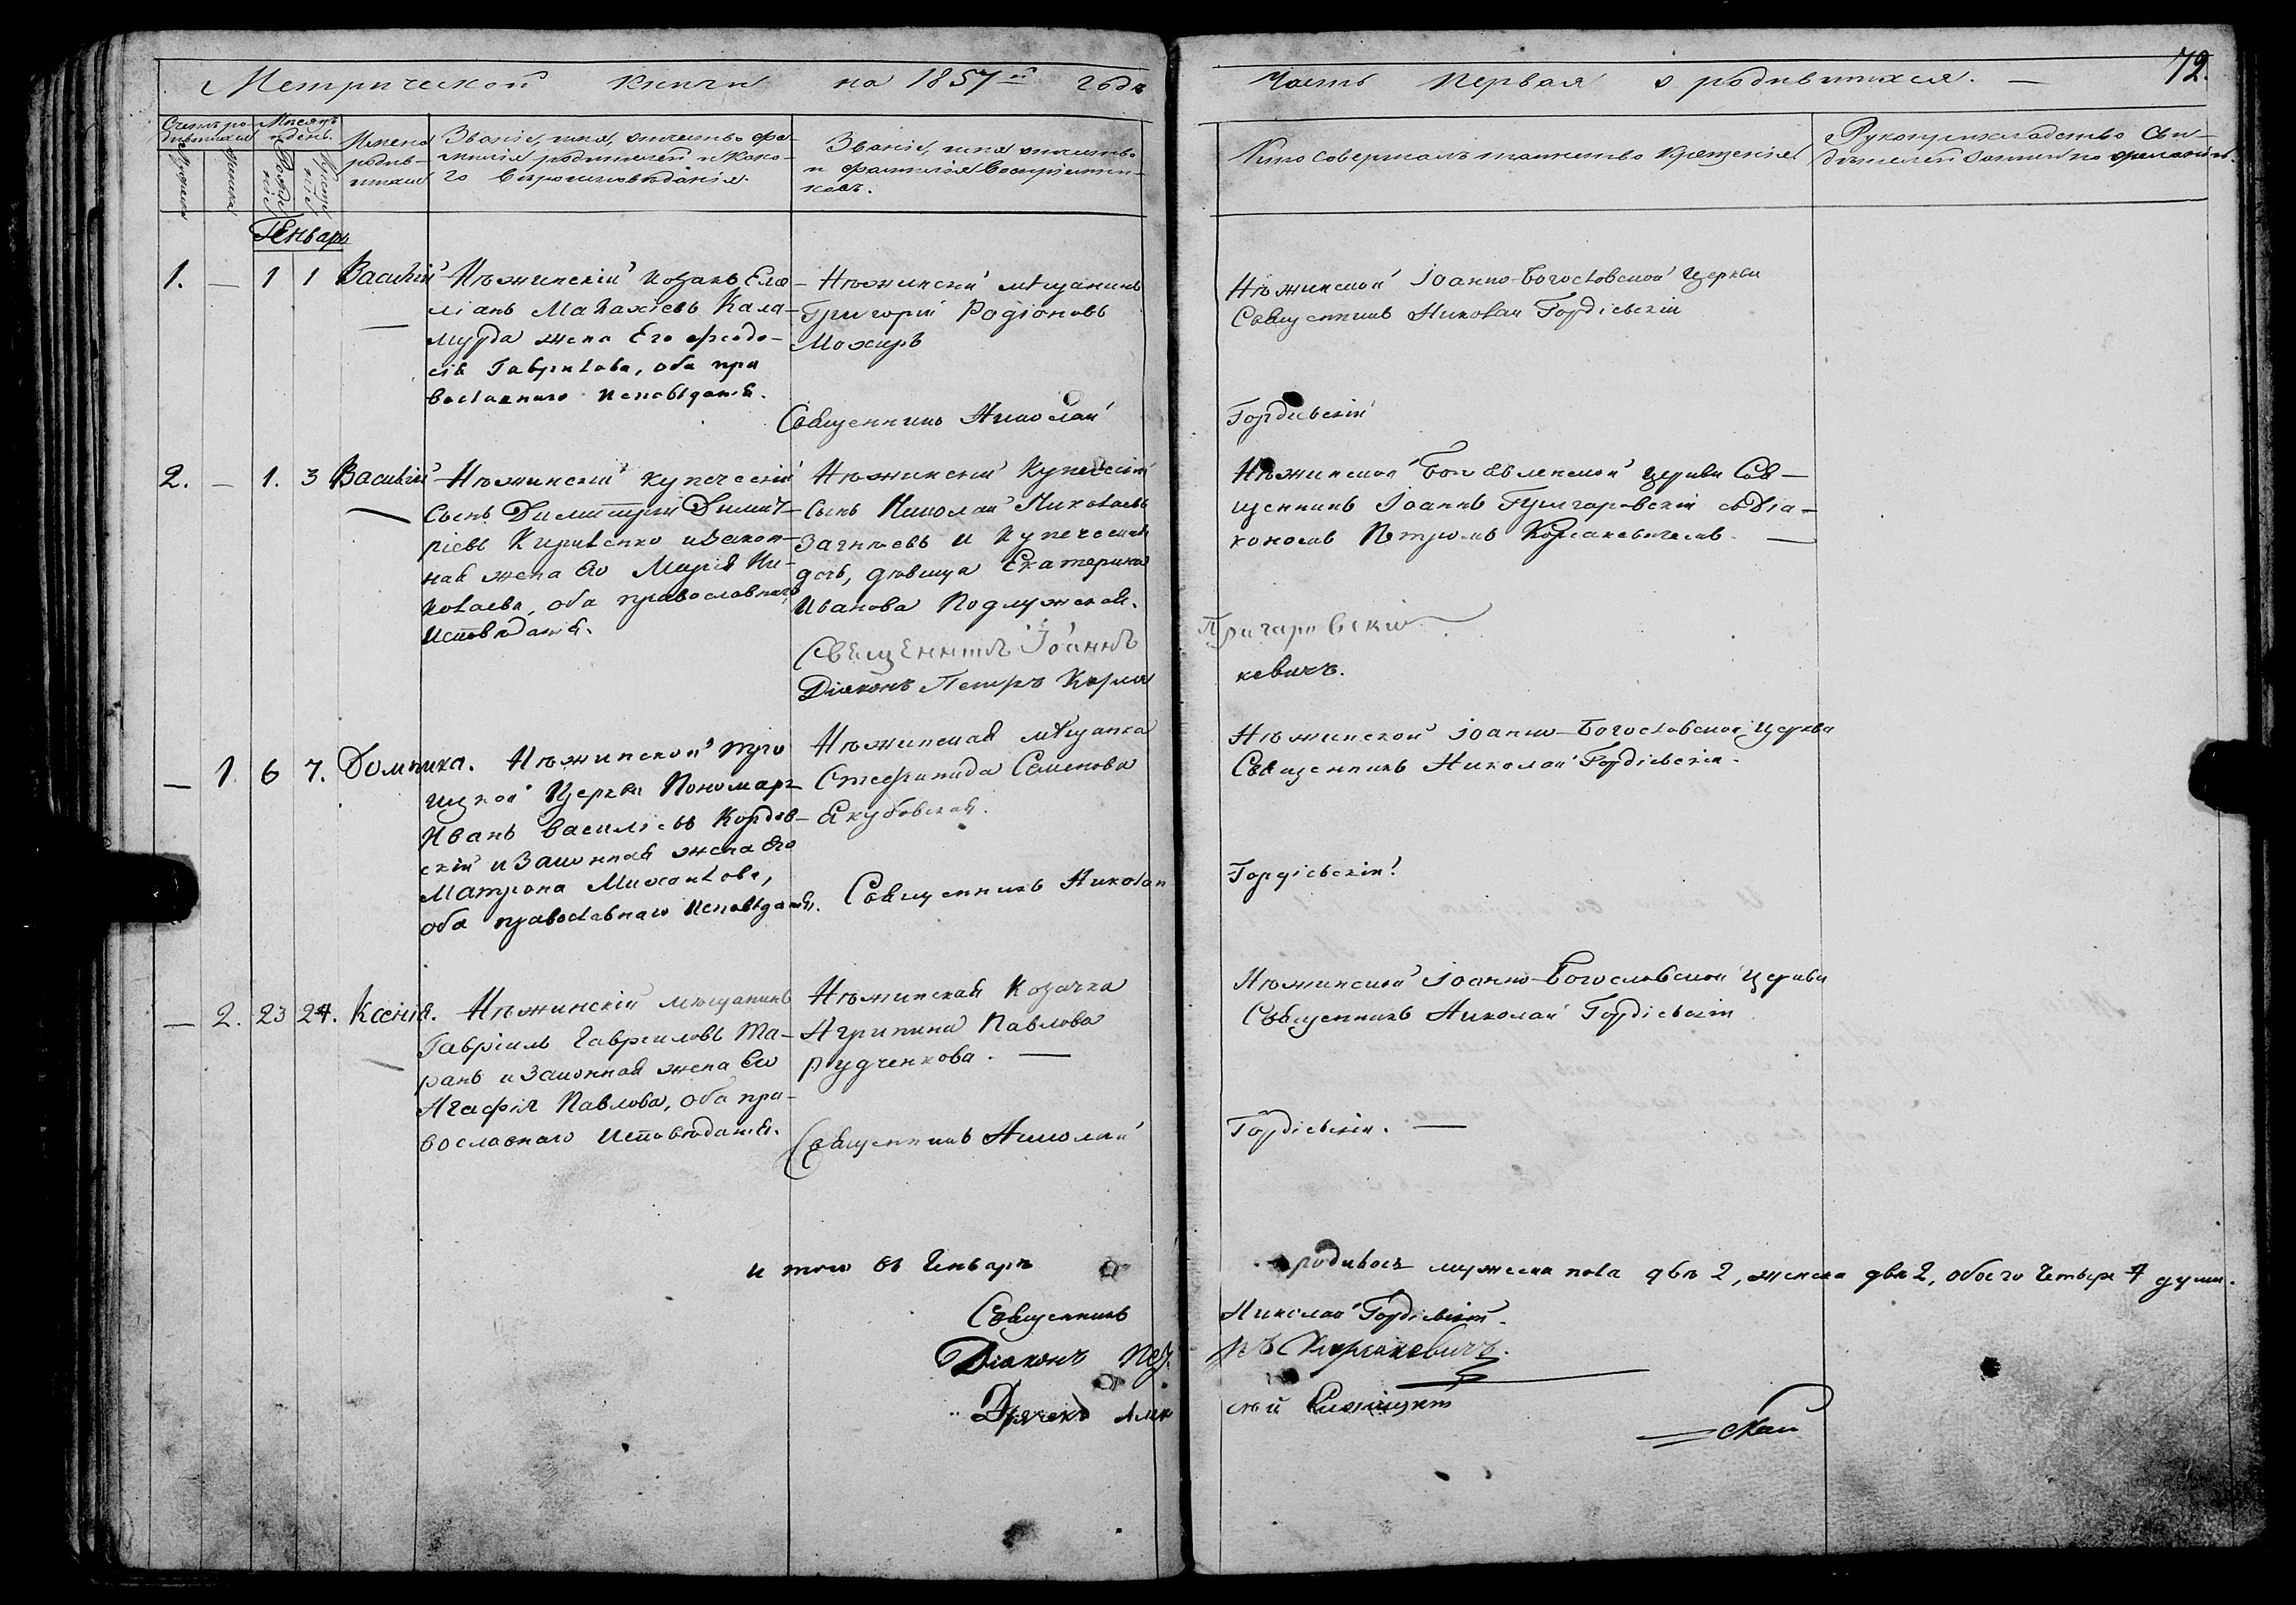 Метрической книги на 1857й годъ
Часть первая о родившихся. — 72.
Счетъ родившихся
Мужеска
Женска
Мѣсяцъ и день.
Рожденія
Крещенія
Имена родившихся
Званіе, имя, отчество, фамилія родителей и какого вѣроисповѣданія.
Званіе, имя отчество и фамилія воспріемниковъ.
Кто совершалъ таинство крещенія
Рукоприкладство свидѣтелей записи по желанію.
Генварь
1. — 1 1 Василій
Нѣжинскій козакъ Еме-
ліанъ Малахіевъ Кала-
мурда жена его Феодо-
сія Гаврилова, оба пра
вославнаго исповѣданія.
Нѣжинскій мѣщанинъ
Григорій Родіоновъ
Мохиръ
Священникъ Николай
Нѣжинской Іоанно-Богословской Церкви
Священникъ Николай Гордіевскій
Гордіевскій
2. — 1. 3 Василій
Нѣжинскій купеческій
Сынъ Димитрій Димит-
ріевъ Кириленко и закон-
ная жена его Марія Ни-
колаева, оба православнаго
исповѣданія.
Нѣжинскій купеческій
Сынъ Николай Николаевъ
и купеческая
дочь, дѣвица Екатерина
Иванова Подлужская.
Священникъ Іоаннъ
Діаконъ Петръ Корса
Нѣжинской Богоявленской церкви Свя-
щенникъ Іоаннъ съ Діа-
кономъ Петромъ Корсакевичемъ. —
кевичъ.
— 1. 6 7. Домника.
Нѣжинской Трои
цкой Церкви Пономарь
Иванъ Василіевъ Кордов-
скій и законная жена его
Матрона Михайлова,
оба православнаго исповѣданія.
Нѣжинская мѣщанка
Стефанида Семенова
Якубовская.
Священникъ Николай
Нѣжинской Іоанно-Богословской Церкви
Священникъ Николай Гордіевскій.
Гордіевскій.
— 2. 23 24. Ксенія.
Нѣжинскій мѣщанинъ
Гавріилъ Гавриловъ Та-
ранъ и законная жена его
Агафія Павлова, оба пра-
вославнаго исповѣданія.
Нѣжинская козачка
Агрипина Павлова
Рудченкова. —
Священникъ Николай
Нѣжинской Іоанно-Богословской Церкви
Священникъ Николай Гордіевскій
Гордіевскій. —
и того въ Генварѣ родилось мужеска пола два 2, женска двѣ 2, обоего четыре 4 души.
Священникъ Николай Гордіевскій.
Діаконъ Петръ Корсакевичъ.
Дьячекъ